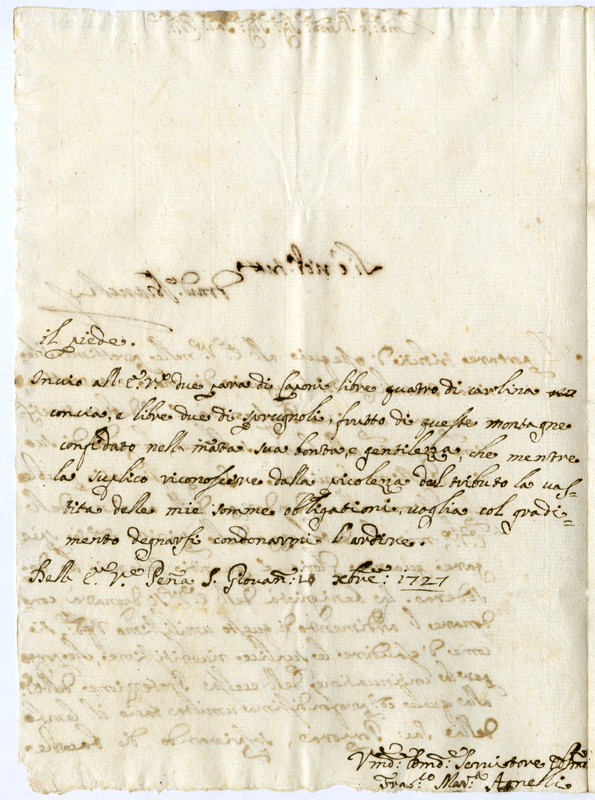 il piede.
Invio all' E.V. due para di Caponi libre quatro di carlina
concia, e libre due di sprugnoli, frutto di queste montagne
confidato nell' inata sua bontà, e gentilezza, che mentre
la suplico riconoscere dalla picolezza del tributo la vas-
tità delle mie somme obbligationi, voglia col gradi-
mento degnarsi condonarmi l'ardire.
Dell' E.V. Penna S. Giovan: 10 xbre: 1727
Servitore
Fran.co Mar.a Agnelli